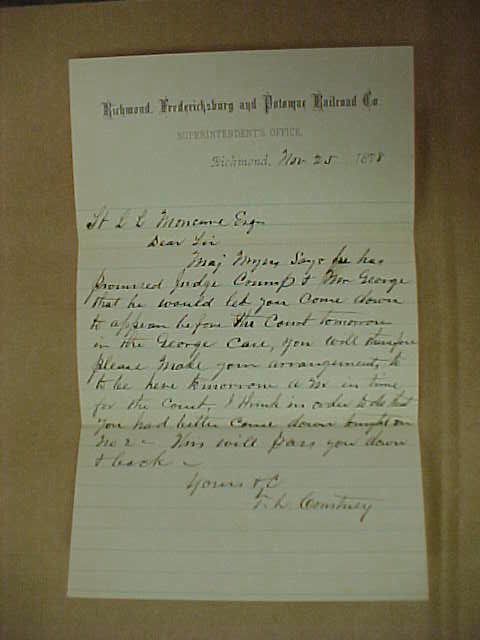 Richmond, Fredericksburg and Potomac Railroad Co.
SUPERINTENDENT'S OFFICE,
Richmond, Nov 25 1878
St L L Moncure Esq
Dear Sir
Maj Myers Says he has
promised Judge & Mr George
that he would let you Come down
to appear before the Court tomorrow
in the George Case, you will therefore
please Make your arrangements to
to be here tomorrow A M in time
for the Court, I think in order to do that
you had better come down tonight on
No 2 - This will pass you down
& back -
Yours &C
T. L. Courtney